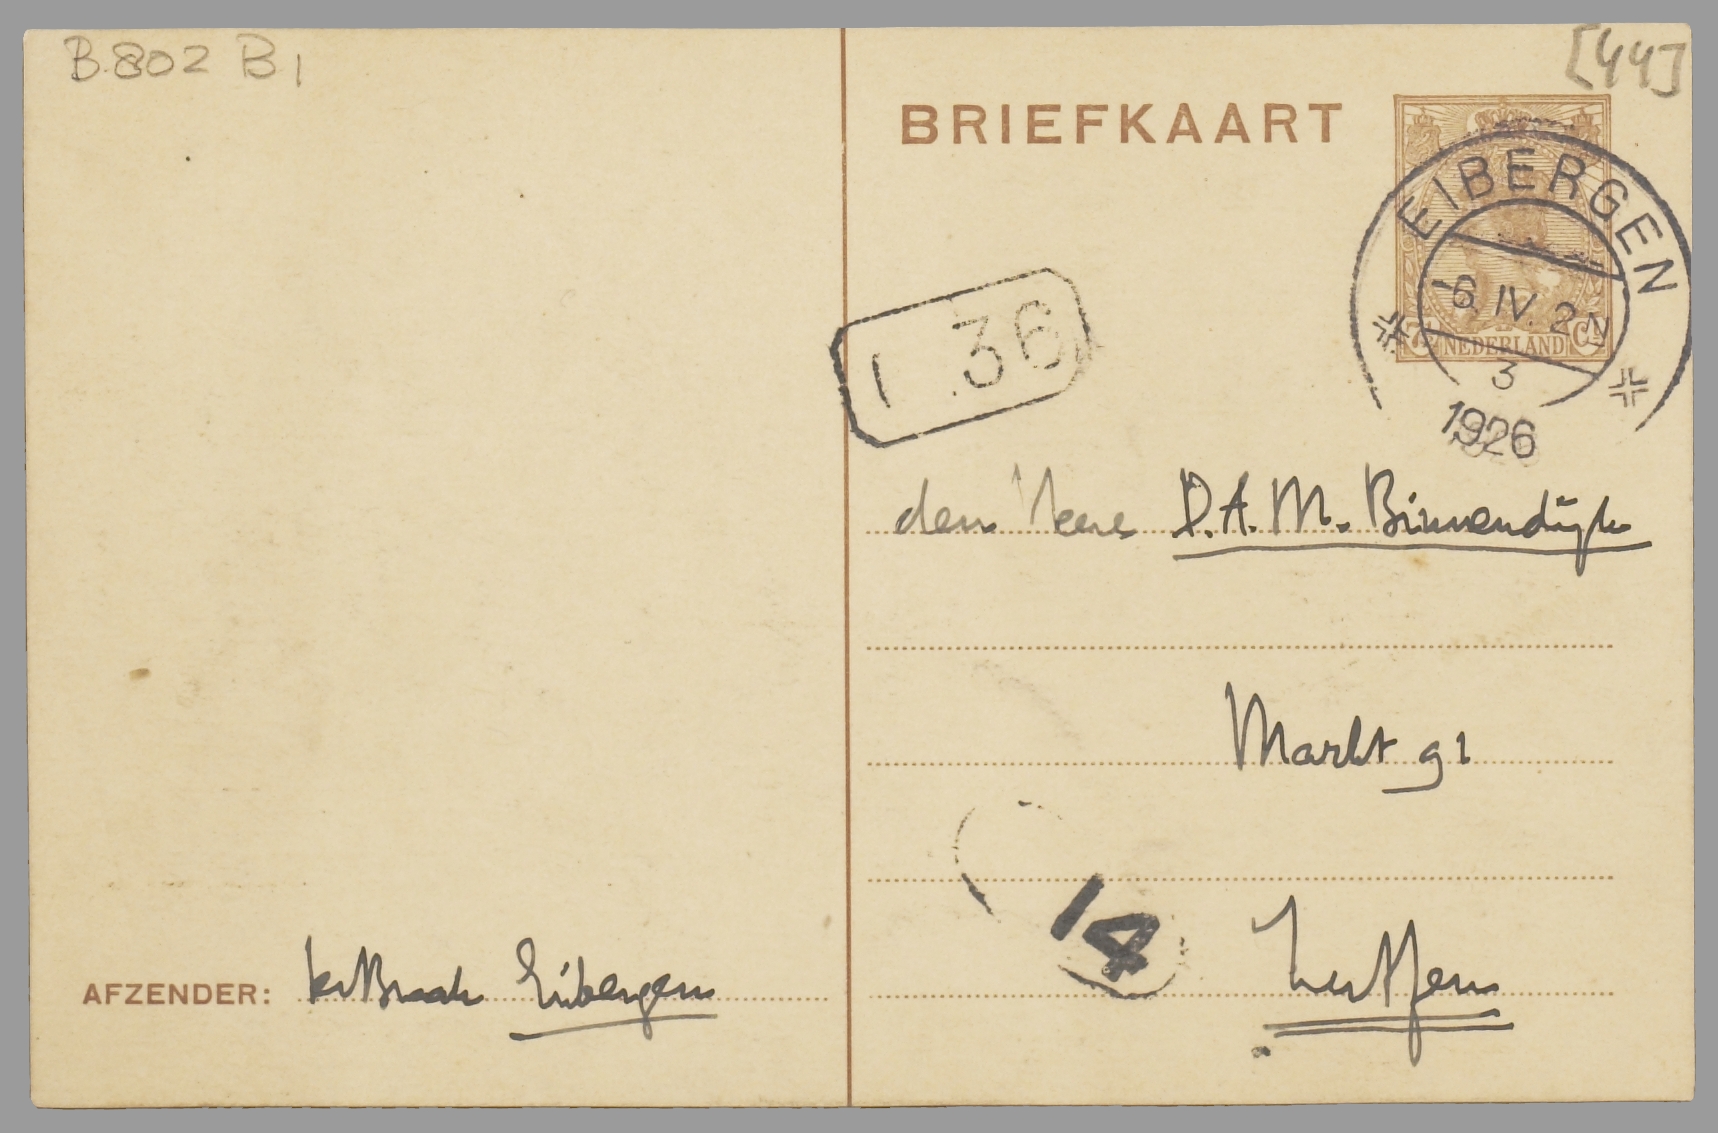 B.802 B1
[44]
BRIEFKAART
EIBERGEN
6. IV. 2
3
1926
7½ Ct
NEDERLAND
36
den Heere D.A.M. Binnendijk
Markt 91
14
Zutfen
AFZENDER: terBraak Eibergen